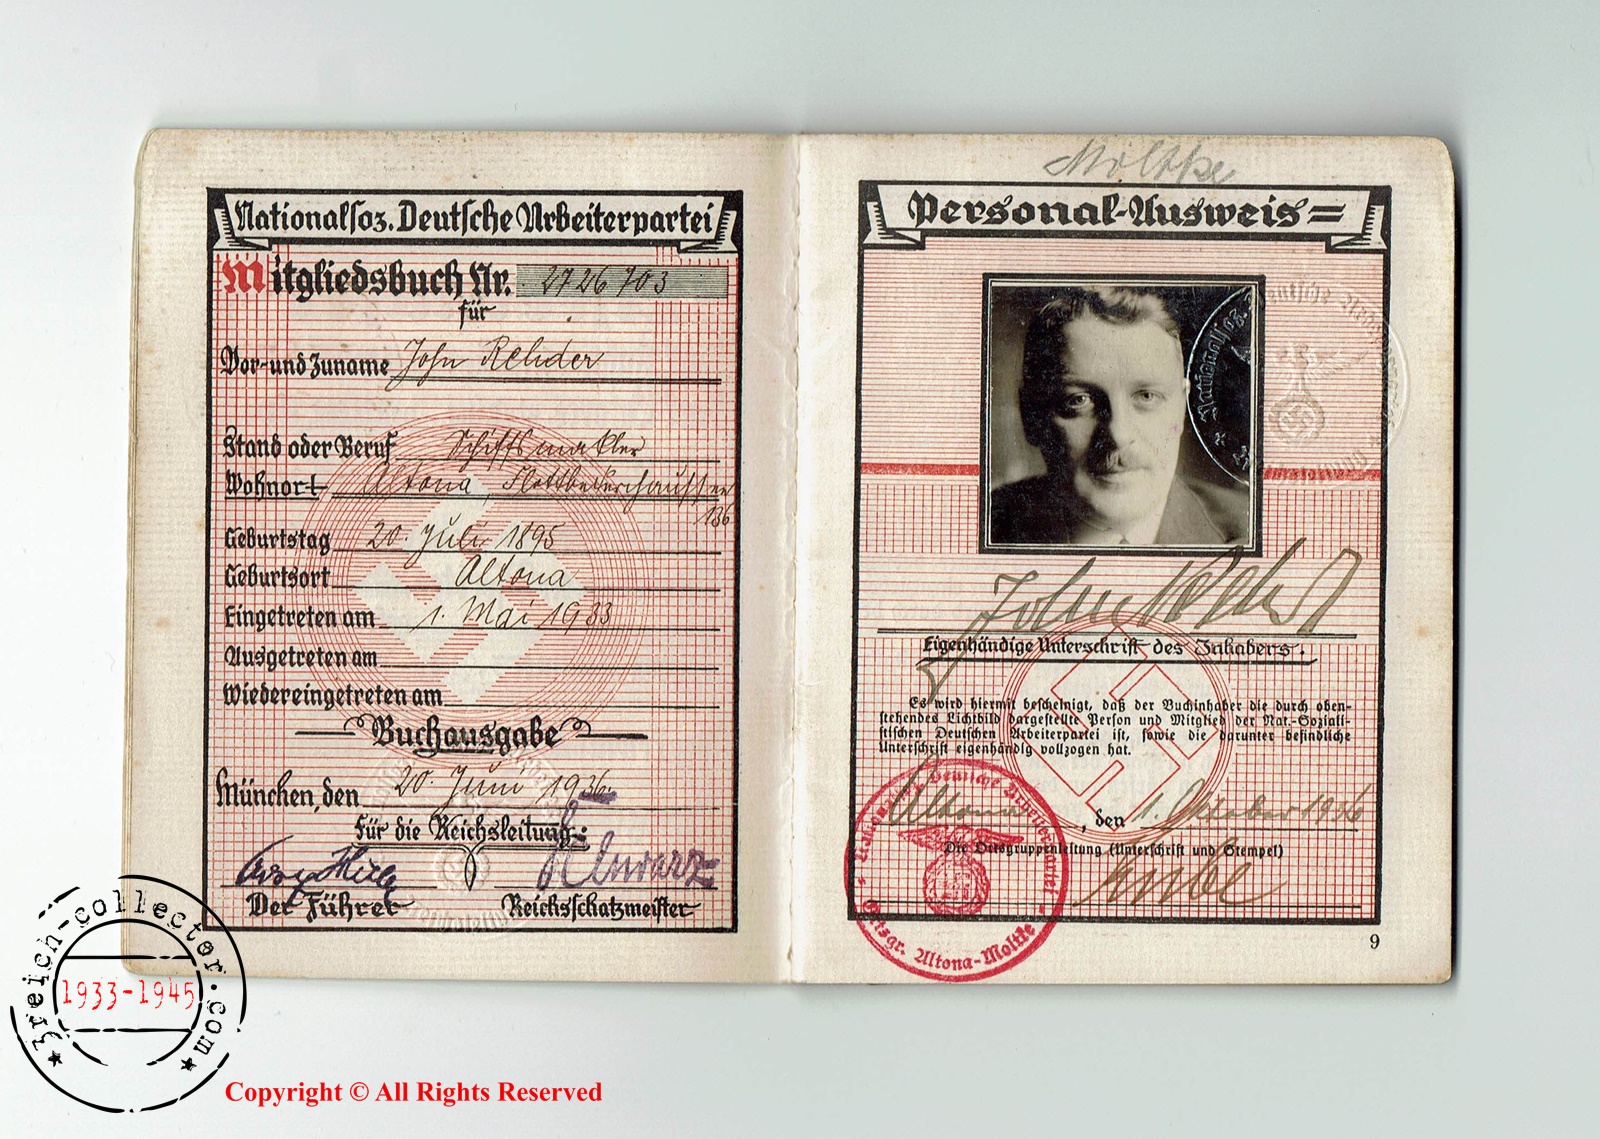 Nationalsoz. Deutsche Arbeiterpartei
Mitgliedsbuch Nr. 2726703
für
Vor- und Zuname John Rehder
Stand oder Beruf Schiffsmakler
Wohnort Altona, Flottbekerchaussee
186
Geburtstag 20. Juli 1895
Geburtsort Altona
Eingetreten am 1. Mai 1933
Ausgetreten am
Wiedereingetreten am
Buchausgabe
München, den 20. Juni 1936
Für die Reichsleitung:
Schwarz
Der Führer Reichsschatzmeister
Moltke
Personal-Ausweis
Nationalsoz. Deutsche Arbeiterpartei
John Rehder
Eigenhändige Unterschrift des Inhabers.
Es wird hiermit bescheinigt, daß der Buchinhaber die durch oben-
stehendes Lichtbild dargestellte Person und Mitglied der Nat.-Soziali-
stischen Deutschen Arbeiterpartei ist, sowie die darunter befindliche
Unterschrift eigenhändig vollzogen hat.
Altona, den 1. Oktober 1936
Die Ortsgruppenleitung (Unterschrift und Stempel)
Nationalsoz. Deutsche Arbeiterpartei
Ortsgr. Altona-Moltke
9
3reich-collector.com
1933-1945
Copyright © All Rights Reserved